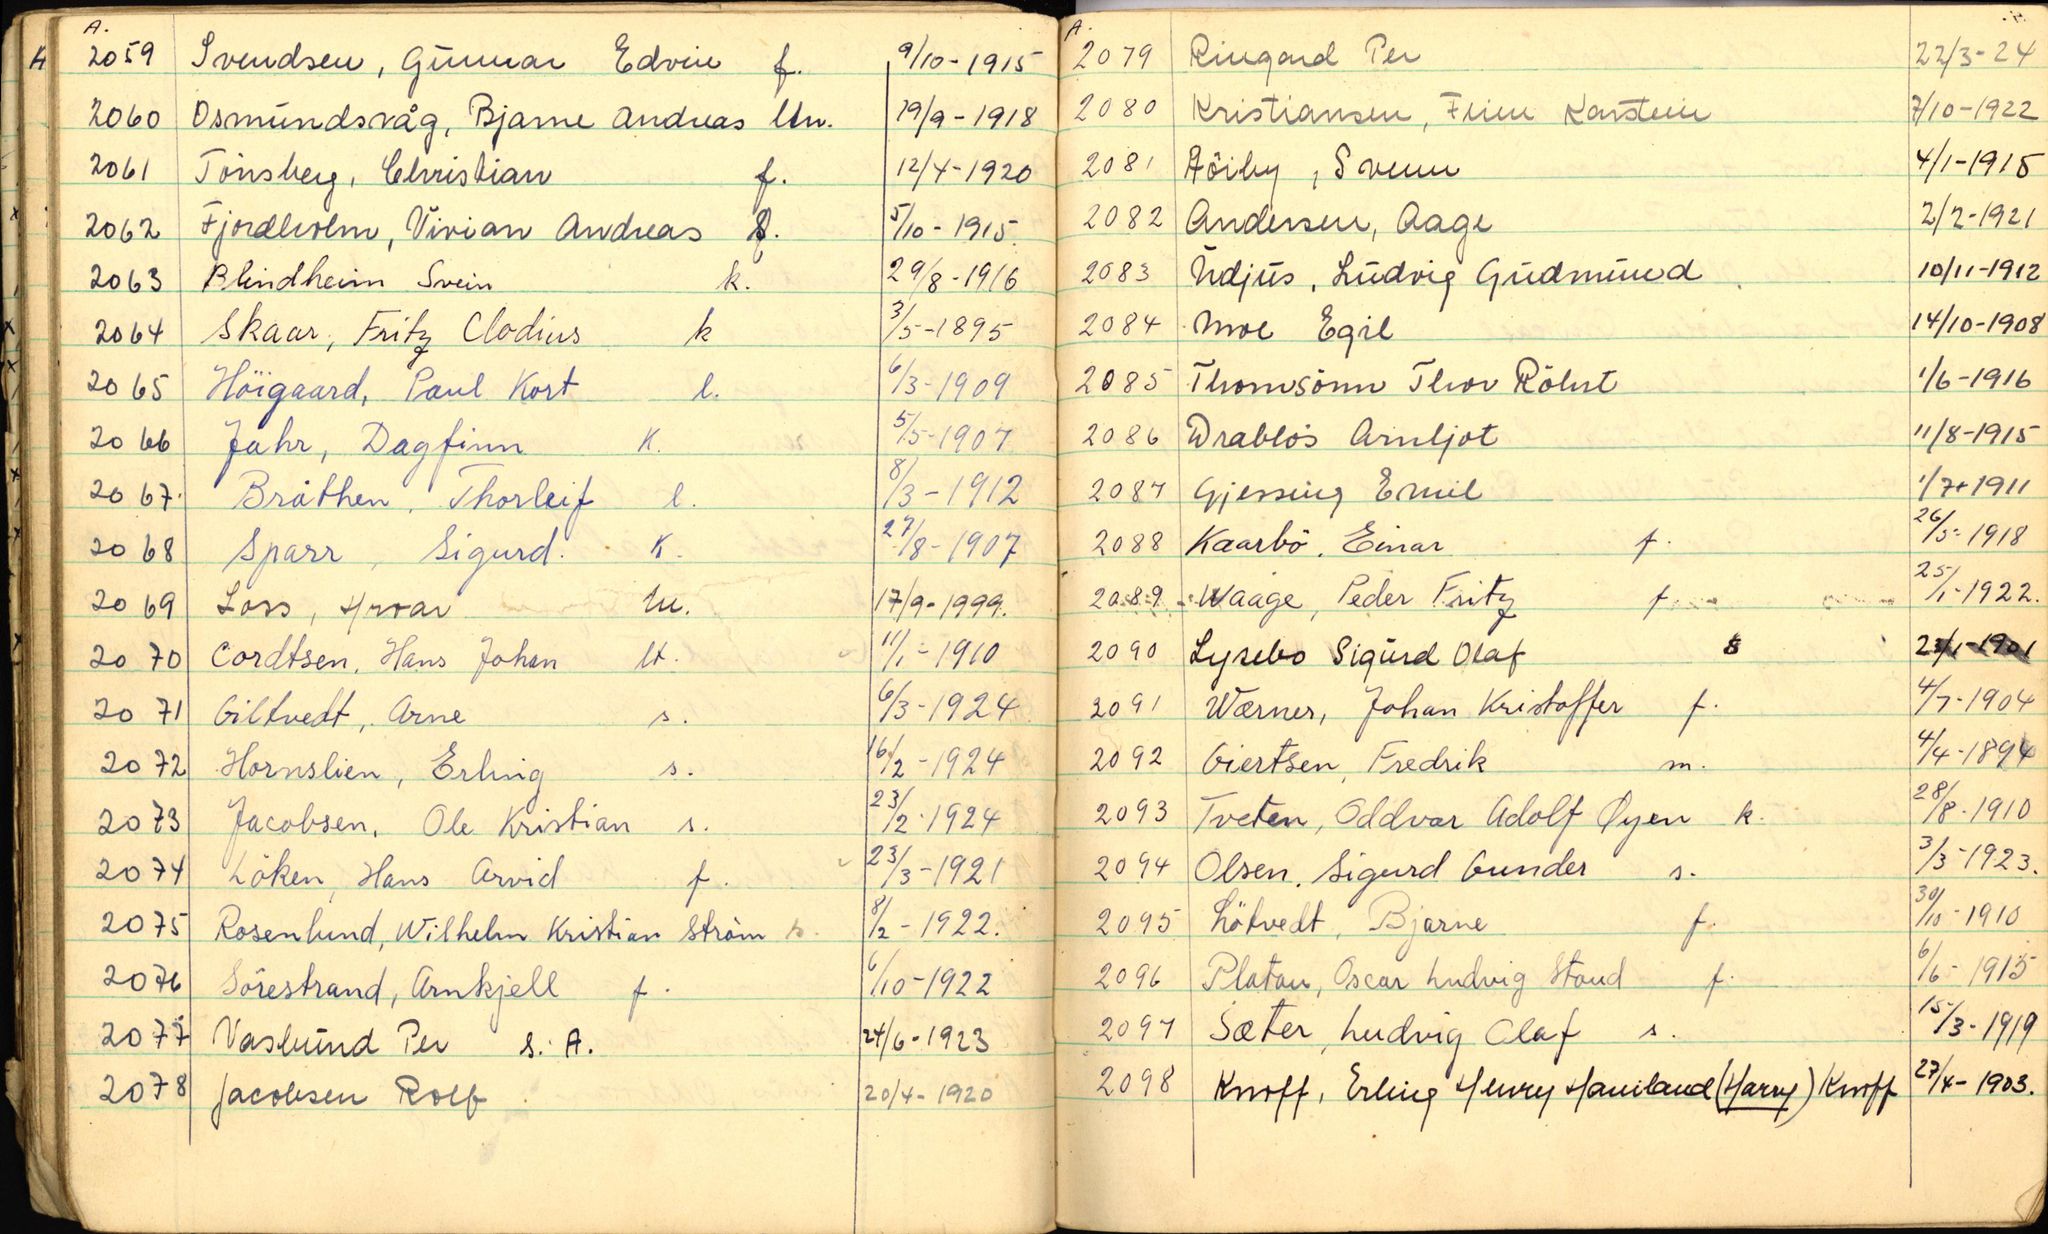 A.
2059 Svendsen, Gunnar Edvin f. 9/10-1915
2060 Osmundsvåg, Bjarne Andreas Un. 19/9-1918
2061 Tönsberg, Christian f. 12/4-1920
2062 Fjordholm, Vivian Andreas 5/10-1915.
2063 Blindheim Svein k. 29/8-1916
2064 Skaar, Fritz Clodius k 3/5-1895
2065 Höigaard, Paul Kort l. 6/3-1909
2066 Jahr, Dagfinn K. 5/5-1907
2067 Bråthen, Thorleif l. 8/3-1912
2068 Sparr, Sigurd. K. 27/8-1907
2069 Loss, Hroar 17/9-1999.
2070 Cordtsen, Hans Johan lt. 11/1-1910
2071 Giltvedt, Arne s. 6/3-1924
2072 Hornslien, Erling s. 16/2-1924
2073 Jacobsen, Ole Kristian s. 23/2-1924
2074 Löken, Hans Arvid f. 23/3-1921
2075 Rosenlund, Wilhelm Kristian Ström s. 8/2-1922.
2076 Sörestrand, Arnkjell f. 6/10-1922
2077 Vaslund Per s. A. 24/6-1923
2078 Jacobsen Rolf 20/4-1920
A.
2079 Ringard Per 22/3-24
2080 Kristiansen, Finn Karstein 7/10-1922
2081 Höiby, Svenn 4/1-1915
2082 Andersen, Aage 2/2-1921
2083 Udjus, Ludvig Gudmund 10/11-1912
2084 Moe Egil 14/10-1908
2085 Thomsönn Thor Röhrt 1/6-1916
2086 Drabløs Arnljot 11/8-1915
2087 Gjessing Emil 1/7-1911
2088 Kaarbö. Einar f. 26/5-1918
2089 Waage, Peder Fritz f 25/1-1922.
2090 Lysebo Sigurd Olaf 23/1-1901
2091 Wærner, Johan Kristoffer f. 4/7-1904
2092 Giertsen, Fredrik m. 4/4-1894
2093 Tveten, Oddvar Adolf Øyen k. 28/8-1910
2094 Olsen, Sigurd Gunder s. 3/3-1923.
2095 Lötvedt, Bjarne f. 30/10-1910
2096 Platou, Oscar Ludvig Stoud f. 6/6-1915
2097 Sæter, Ludvig Olaf s. 15/3-1919
2098 Knoff, Erling Henry Haviland (Harry) Knoff 27/4-1903.